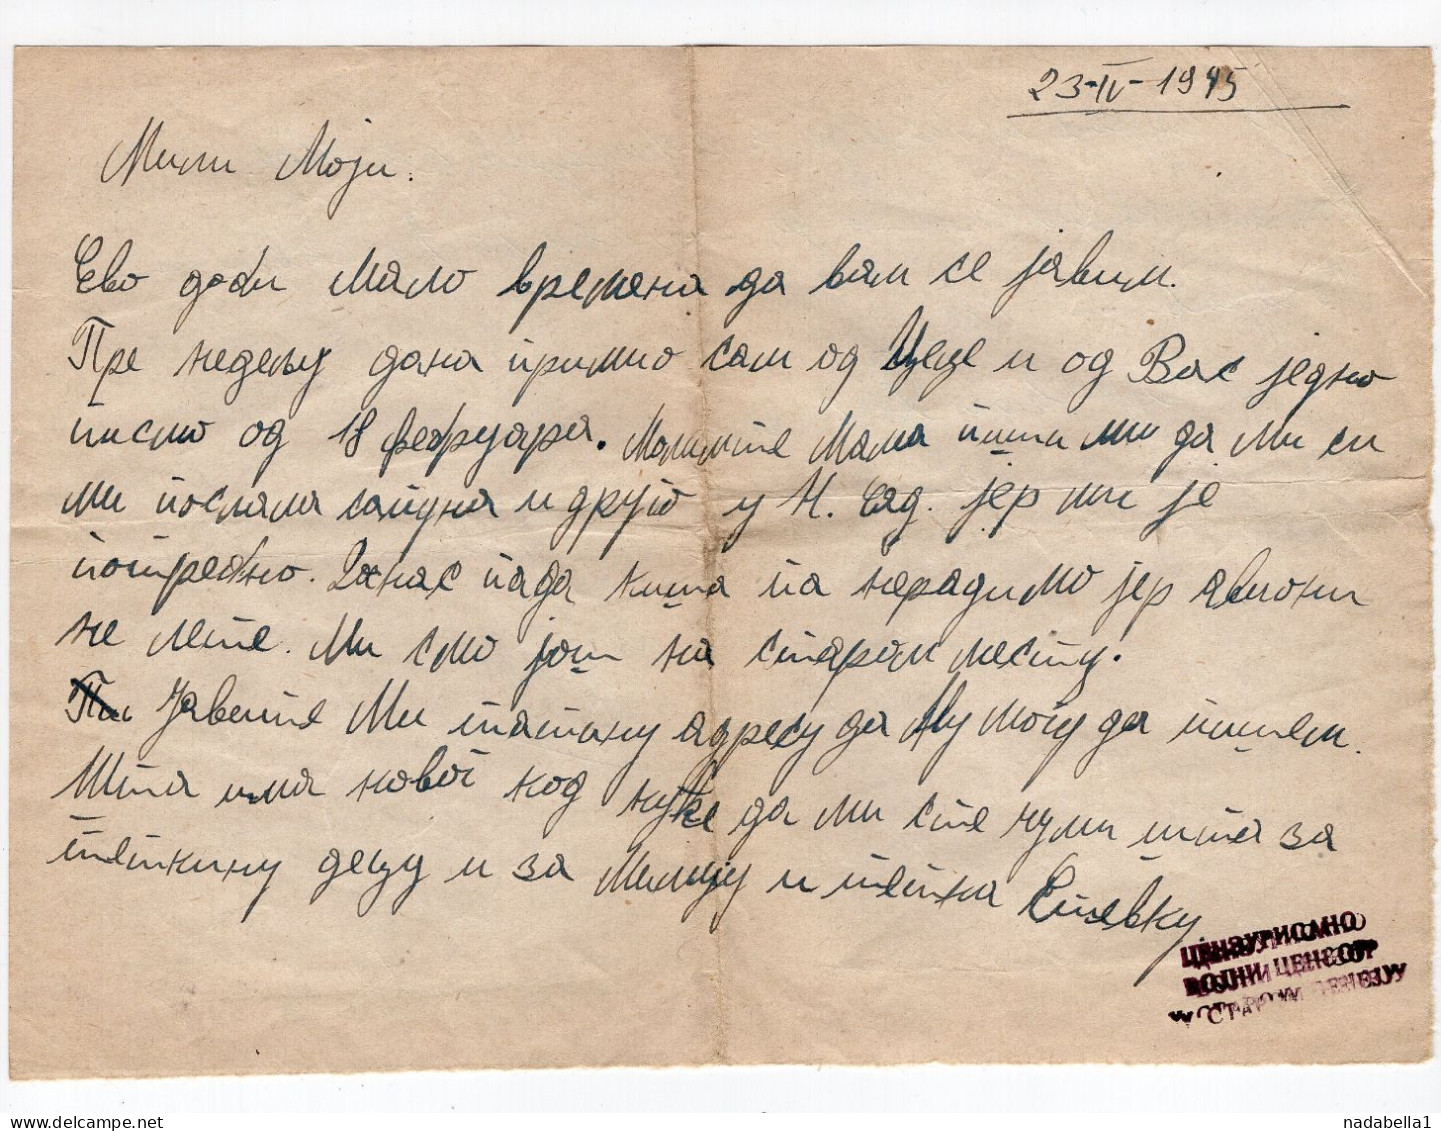 23-IV-1945
Мили Моји.
Ево доби мало времена да вам се јавим.
Пре недељу дана примио сам од Цеце и од Вас једно
писмо од 18 фебруара. Молимте Мама пиши ми да ми си
ми послала сапуна и друго у Н. Сад. јер ми је
потребно. Данас пада киша па нерадимо јер авиони
не лете. Ми смо још на старом месту.
Јавите Ми татину адресу да Му могу да пишем.
Шта има новог код куће да ми сте чули шта за
теткину децу и за Милицу и тетка Стевку
ЦЕНЗУРИСАНО
ВОЈНИ ЦЕНЗОР
У СТАРОМ БЕЧЕЈУ
nadabella1